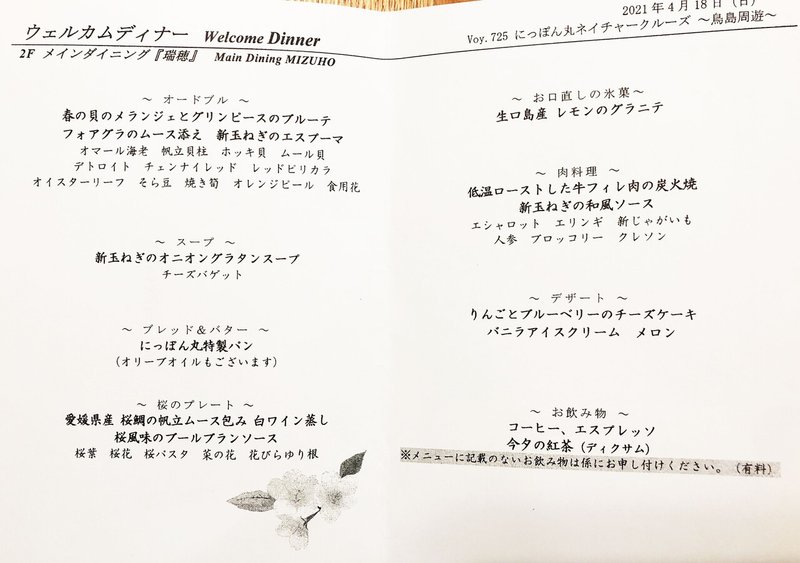 ウェルカムディナー Welcome Dinner
2F メインダイニング『瑞穂』 Main Dining MIZUHO
～ オードブル ～
春の貝のメランジェとグリンピースのブルーテ
フォアグラのムース添え 新玉ねぎのエスプーマ
オマール海老 帆立貝柱 ホッキ貝 ムール貝
デトロイト チェンナイレッド レッドビリカラ
オイスターリーフ そら豆 焼き筍 オレンジピール 食用花
～ スープ ～
新玉ねぎのオニオングラタンスープ
チーズバゲット
～ ブレッド＆バター ～
にっぽん丸特製パン
（オリーブオイルもございます）
～ 桜のプレート ～
愛媛県産 桜鯛の帆立ムース包み 白ワイン蒸し
桜風味のブールブランソース
桜葉 桜花 桜パスタ 菜の花 花びらゆり根
2021年4月18日（日）
Voy.725 にっぽん丸ネイチャークルーズ ～鳥島周遊～
～ お口直しの氷菓～
生口島産 レモンのグラニテ
～ 肉料理 ～
低温ローストした牛フィレ肉の炭火焼
新玉ねぎの和風ソース
エシャロット エリンギ 新じゃがいも
人参 ブロッコリー クレソン
～ デザート ～
りんごとブルーベリーのチーズケーキ
バニラアイスクリーム メロン
～ お飲み物 ～
コーヒー、エスプレッソ
今夕の紅茶（ディクサム）
※メニューに記載のないお飲み物は係にお申し付けください。（有料）